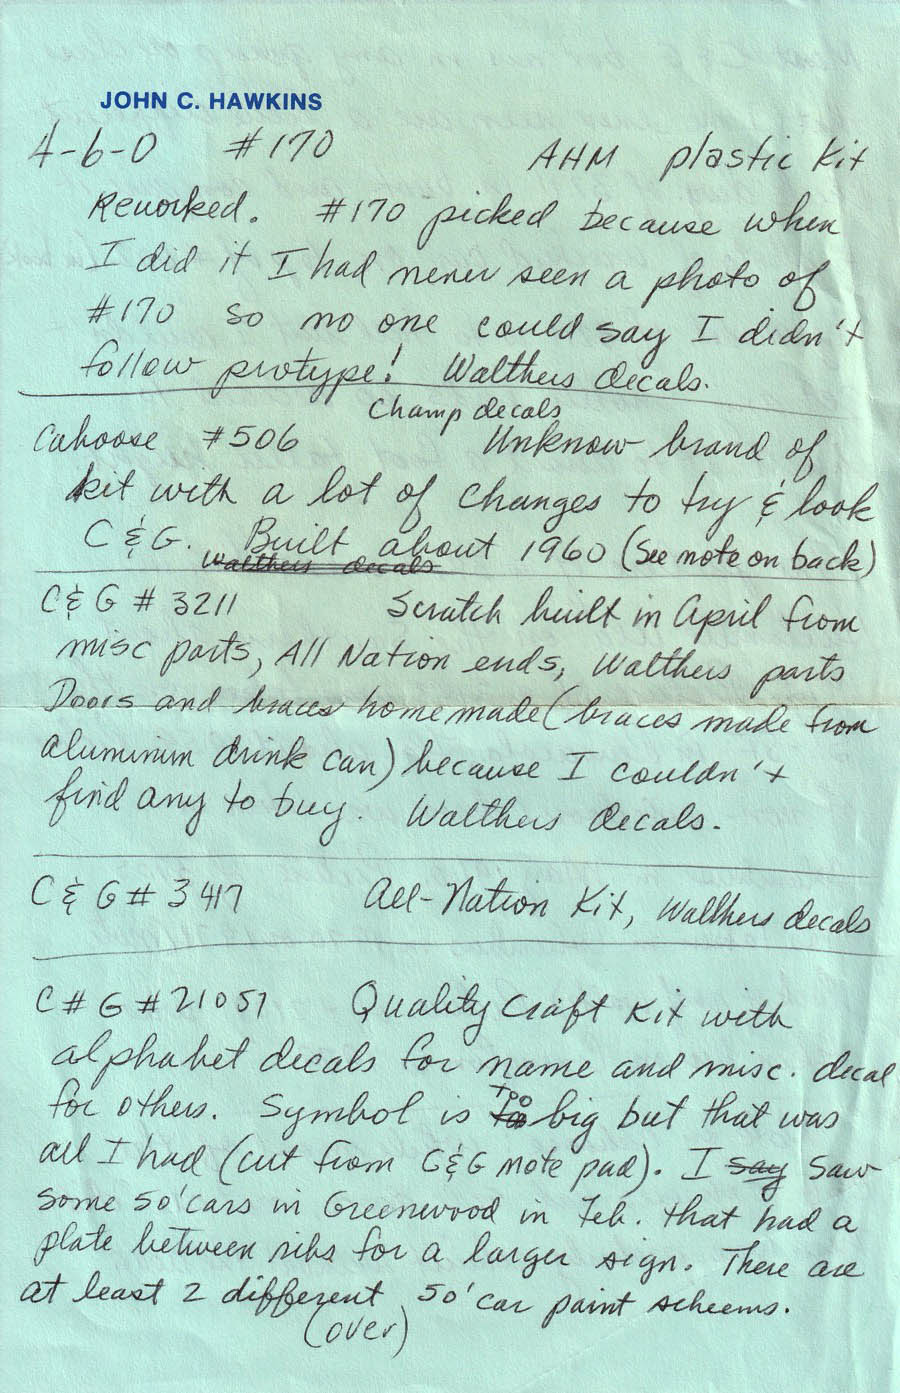 JOHN C. HAWKINS
4-6-0 #170 AHM plastic Kit
Reworked. #170 picked because when
I did it I had never seen a photo of
#170 so no one could say I didn't
follow protype! Walthers decals.
Champ decals
Caboose #506 Unknow brand of
kit with a lot of changes to try & look
C&G. Built about 1960 (See note on back)
Walthers decals
C&G # 3211 Scratch built in April from
misc parts, All Nation ends, Walthers parts
Doors and braces homemade (braces made from
aluminum drink can) because I couldn't
find any to buy. Walthers decals.
C&G # 3417 All-Nation Kit, Walthers decals
C#G #21051 Quality Craft Kit with
alphabet decals for name and misc. decal
for others. Symbol is too big but that was
all I had (cut from C&G note pad). I say saw
some 50' cars in Greenwood in Feb. that had a
plate between ribs for a larger sign. There are
at least 2 different 50' car paint scheems.
(over)